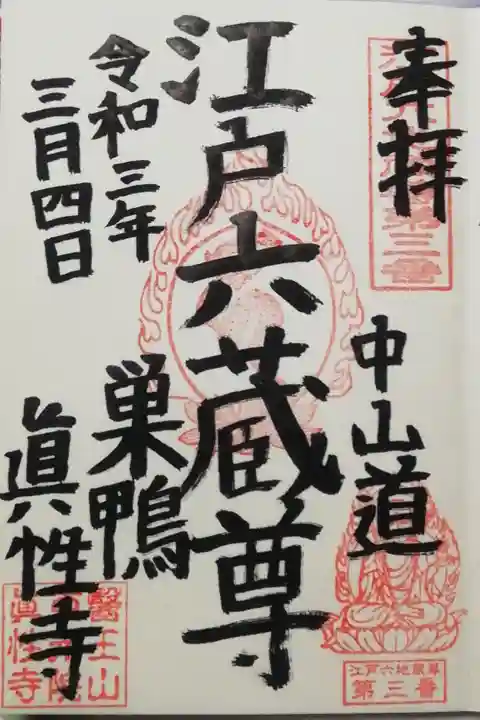 奉拝
中山道
江戸六地蔵尊
第三番
江戸六蔵尊
巣鴨
眞性寺
令和三年
三月四日
醫王山
眞性寺